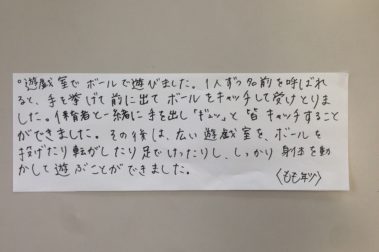 ○遊戯室でボールで遊びました。1人ずつ名前を呼ばれ
ると、手を挙げて前に出てボールをキャッチして受けとりま
した。保育者と一緒に手を出し「ギュッ」と皆キャッチすること
ができました。その後は、広い遊戯室を、ボールを
投げたり転がしたり足でけったりし、しっかり身体を動
かして遊ぶことができました。
〈もも年少〉